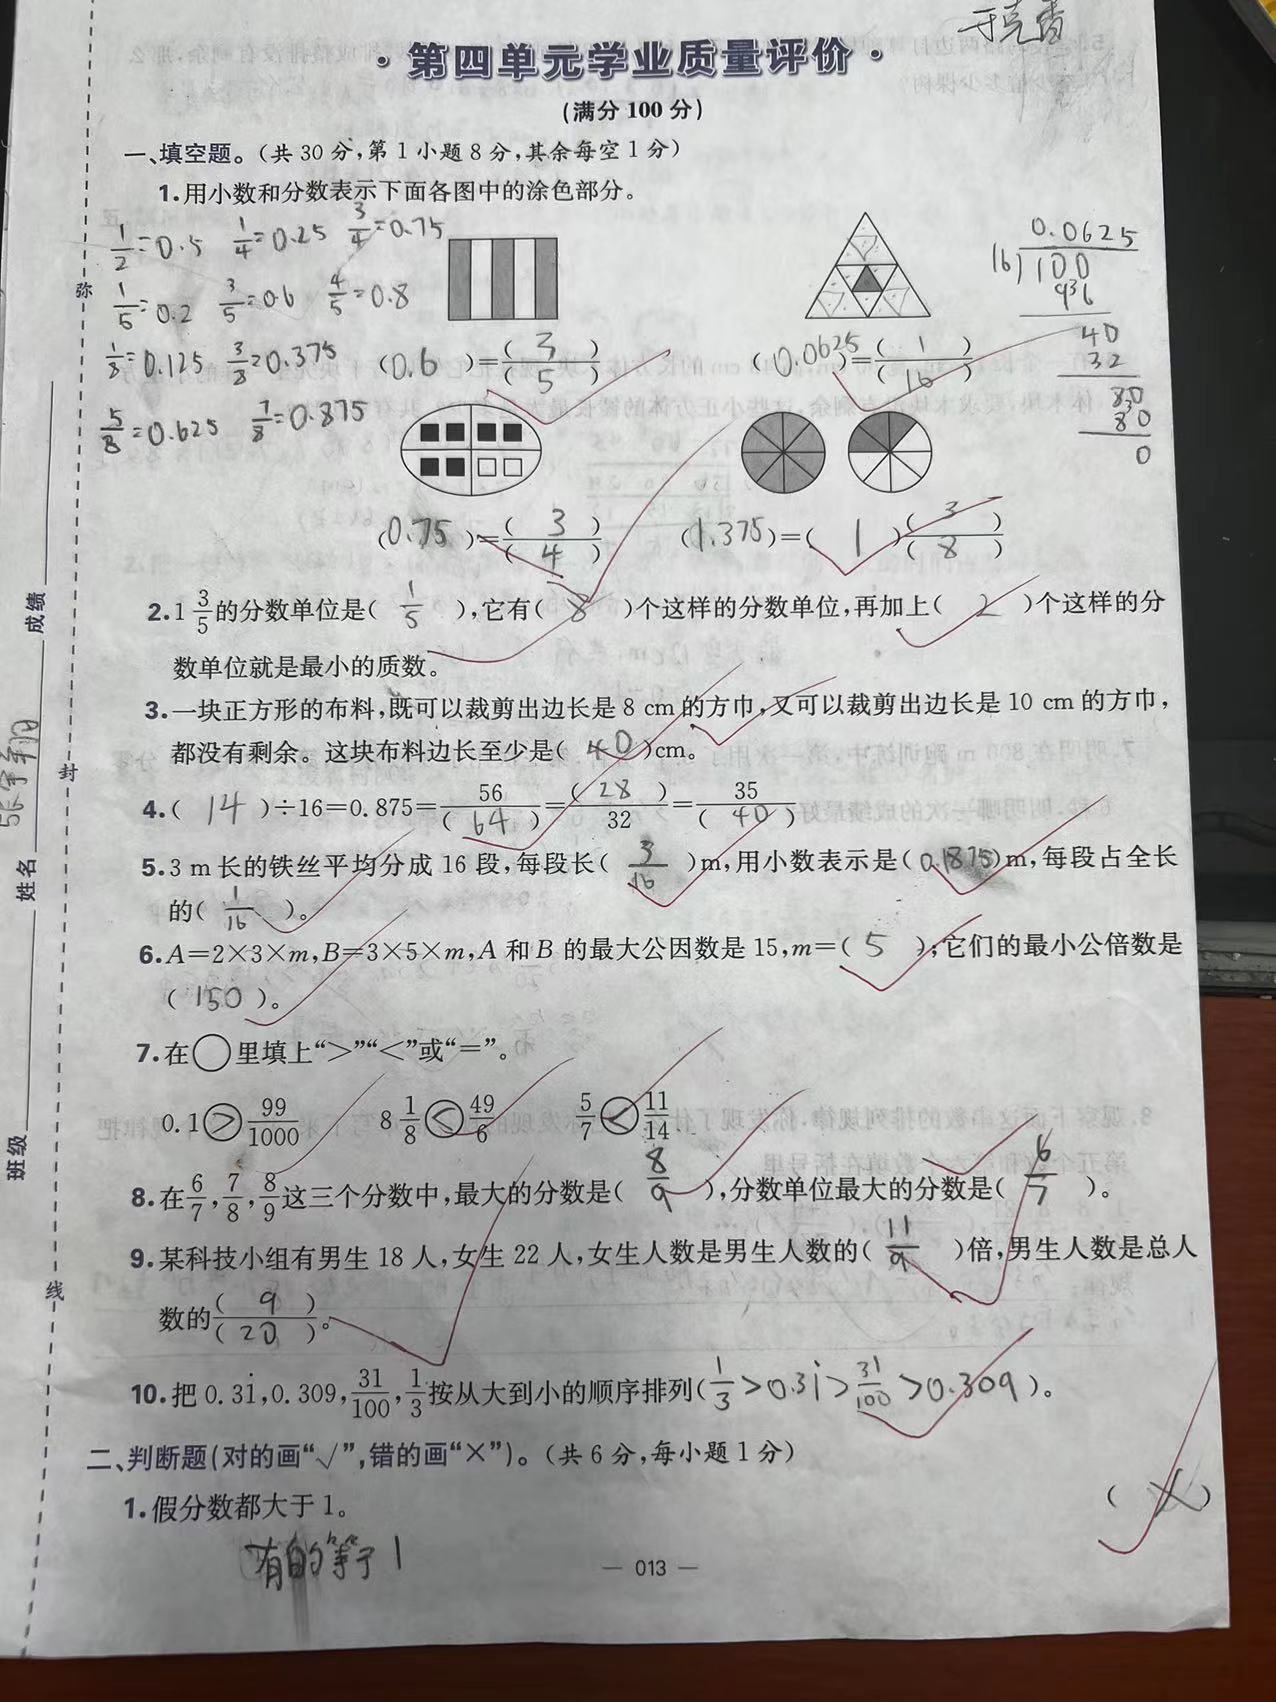 ·第四单元学业质量评价·
(满分100分)
一、填空题。(共30分,第1小题8分,其余每空1分)
1.用小数和分数表示下面各图中的涂色部分。
1/2=0.5 1/4=0.25 3/4=0.75
1/5=0.2 3/5=0.6 4/5=0.8
1/8=0.125 3/8=0.375
5/8=0.625 7/8=0.875
0.0625
16)100
96
40
32
80
80
0
(0.6)=(3)/(5) (0.0625)=(1)/(16)
(0.75)=(3)/(4) (1.375)=(1)(3)/(8)
2.1 3/5的分数单位是( 1/5 ),它有( 8 )个这样的分数单位,再加上( 2 )个这样的分
数单位就是最小的质数。
3.一块正方形的布料,既可以裁剪出边长是8 cm的方巾,又可以裁剪出边长是10 cm的方巾,
都没有剩余。这块布料边长至少是( 40 )cm。
4.( 14 )÷16=0.875=56/( 64 )=( 28 )/32=35/( 40 )
5.3 m长的铁丝平均分成16段,每段长( 3/16 )m,用小数表示是(0.1875)m,每段占全长
的( 1/16 )。
6.A=2×3×m,B=3×5×m,A和B的最大公因数是15,m=( 5 );它们的最小公倍数是
( 150 )。
7.在○里填上“>”“<”或“=”。
0.1>99/1000 8 1/8<49/6 5/7<11/14
8.在6/7,7/8,8/9这三个分数中,最大的分数是( 8/9 ),分数单位最大的分数是( 6/7 )。
9.某科技小组有男生18人,女生22人,女生人数是男生人数的( 11/9 )倍,男生人数是总人
数的( 9 )/( 20 )。
10.把0.31̇,0.309,31/100,1/3按从大到小的顺序排列(1/3>0.31̇>31/100>0.309)。
二、判断题(对的画“√”,错的画“×”)。(共6分,每小题1分)
1.假分数都大于1。 ( × )
有的等于1
— 013 —
弥
封
线
成绩
姓名
班级